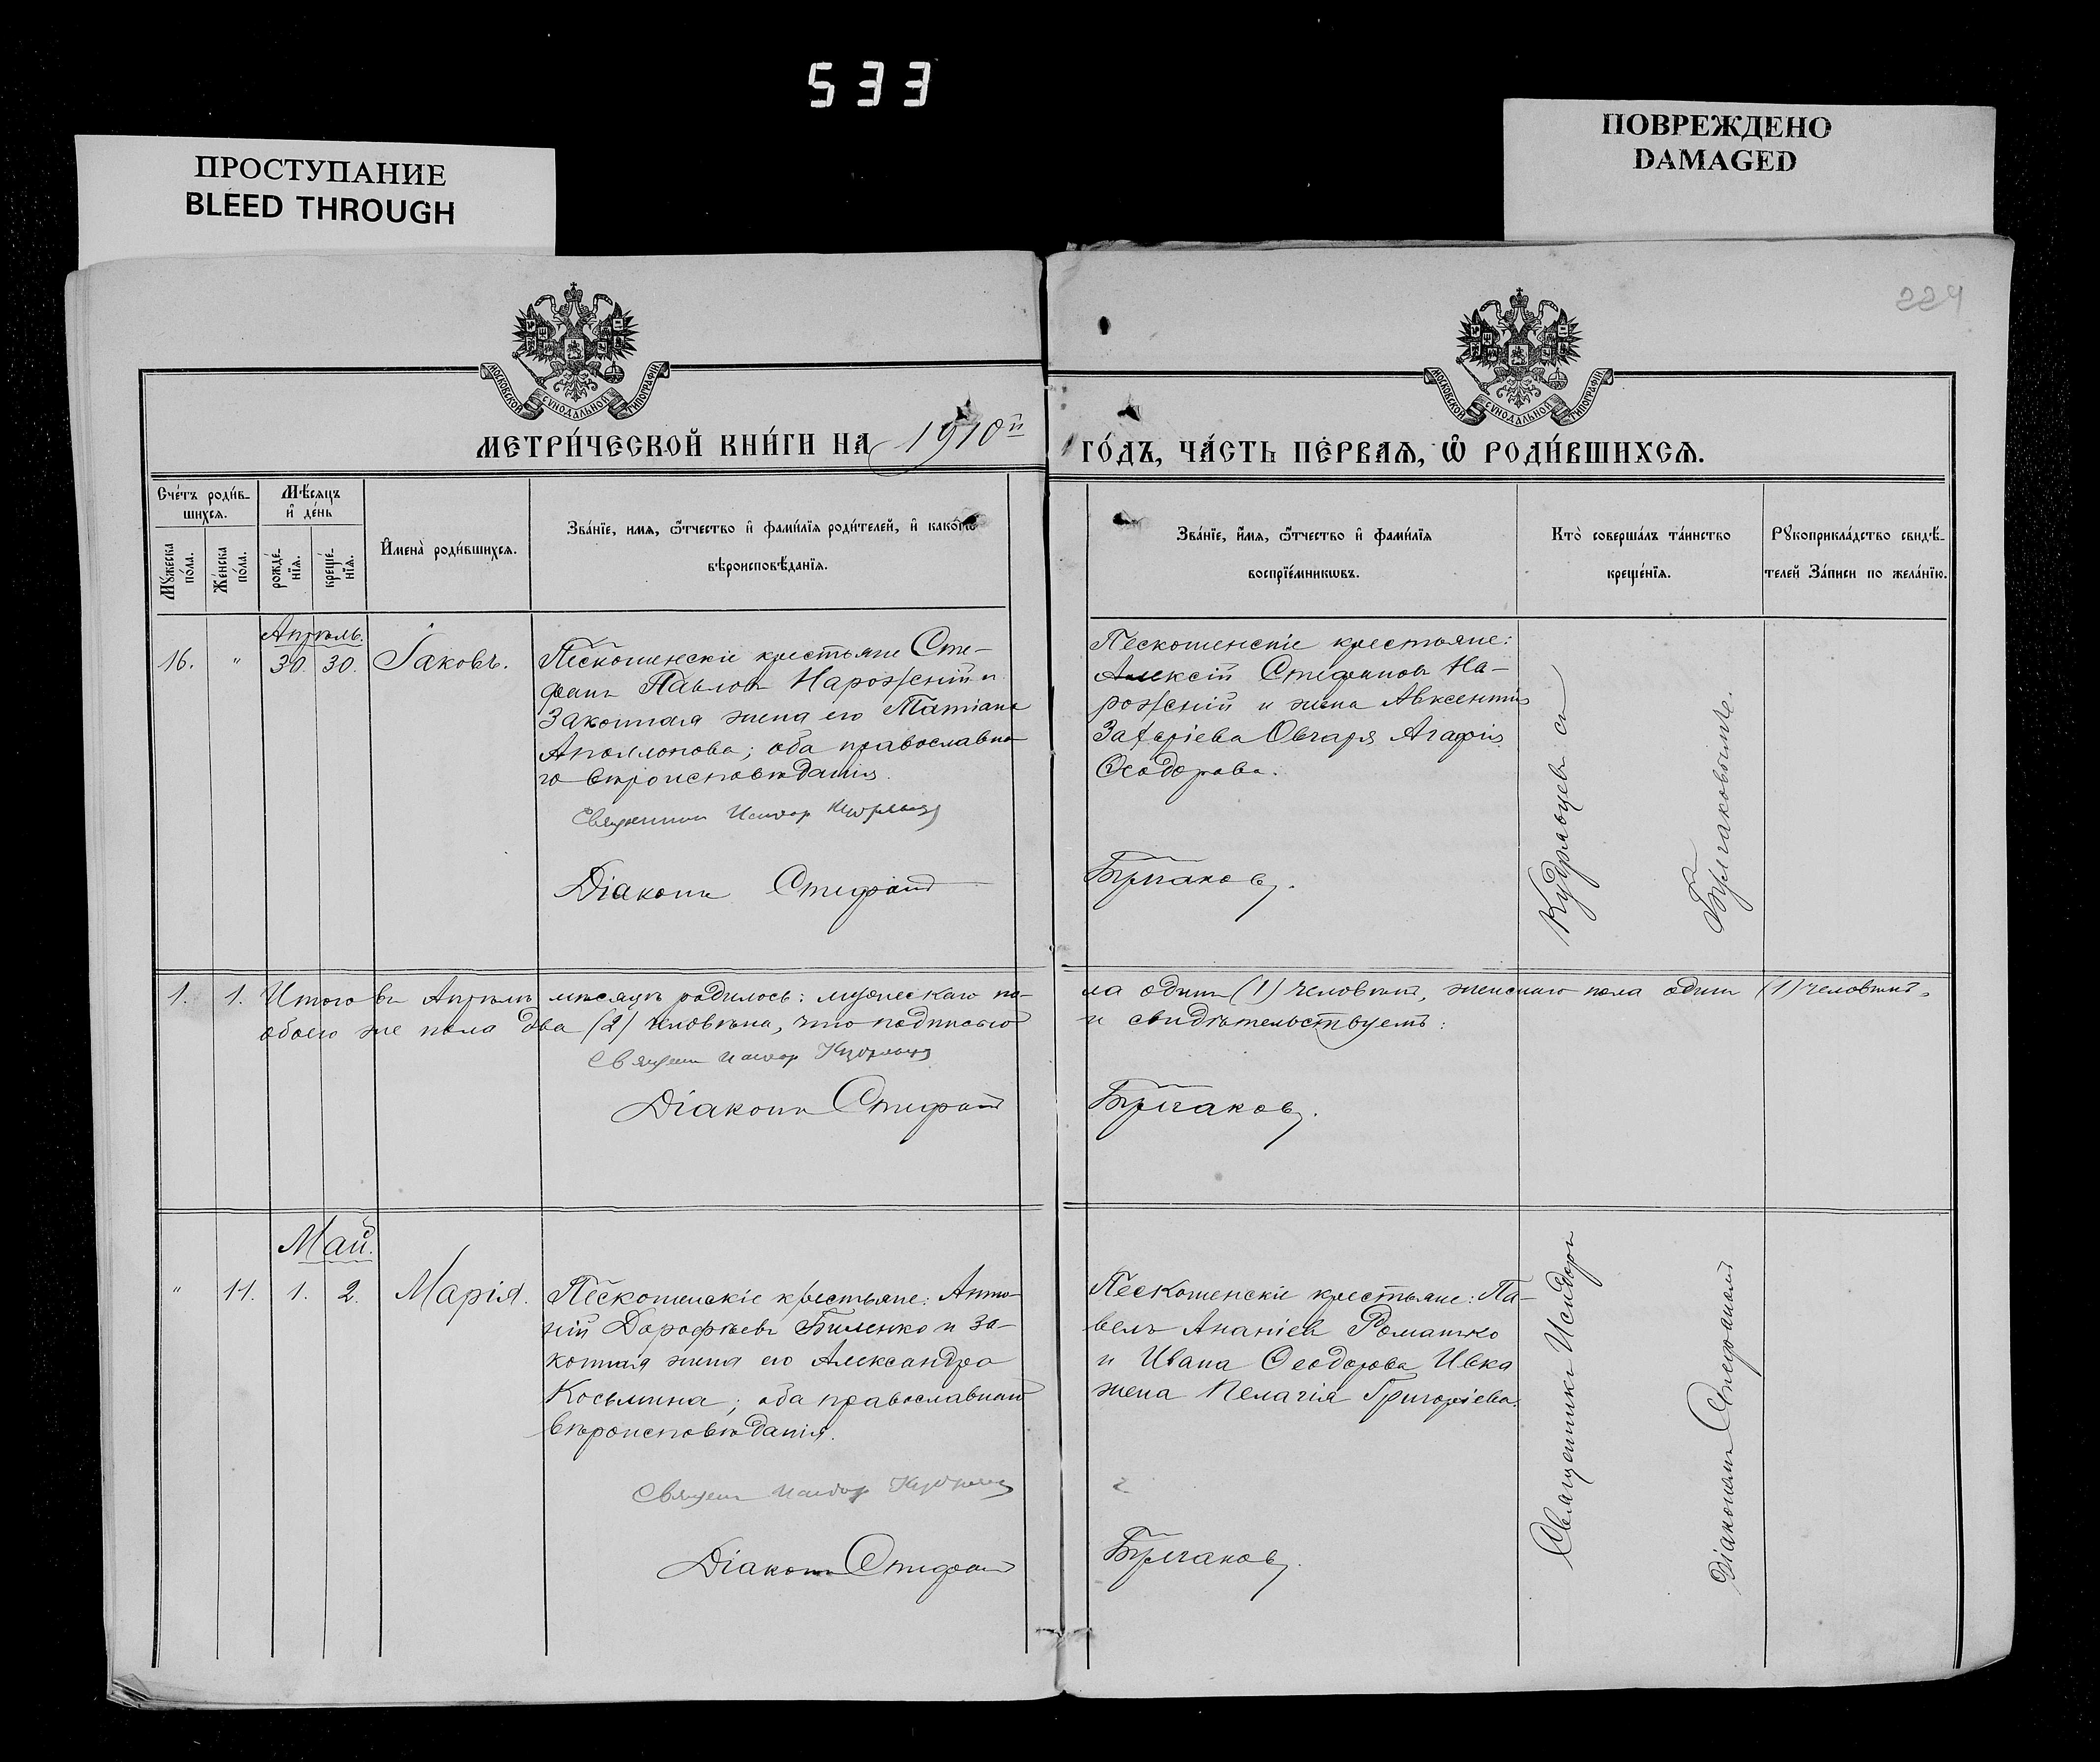 533
ПРОСТУПАНИЕ
BLEED THROUGH
ПОВРЕЖДЕНО
DAMAGED
224
МОСКОВСКОЙ СѴНОДАЛЬНОЙ ТИПОГРАФІИ
МОСКОВСКОЙ СѴНОДАЛЬНОЙ ТИПОГРАФІИ
МЕТРИ́ЧЕСКОЙ КНИ́ГИ НА 1910й
ГО́ДЪ, ЧА́СТЬ ПЕ́РВАѦ, Ѡ҆ РОДИ́ВШИХСѦ.
Сче́тъ роди́в-
шихсѧ.
Мꙋ́жеска
по́ла.
Же́нска
по́ла.
Мѣ́сѧцъ
и҆ де́нь
рожде́-
нїѧ.
креще́-
нїѧ.
И҆мена̀ роди́вшихсѧ.
Зва́нїе, имѧ, ѻ҆́тчество и҆ фами́лїѧ роди́телей, и҆ како́гѡ
вѣроисповѣ́данїѧ.
Зва́нїе, и҆́мѧ, ѻ҆́тчество и҆ фами́лїѧ
воспрїе́мникѡвъ.
Кто̀ соверша́лъ та́инство
креще́нїѧ.
Рꙋкоприкла́дство свидѣ́-
телей За́писи по жела́нїю.
Апрѣль.
16. " 30. 30. Іаковъ.
Пескошенскіе крестьяне Сте-
фанъ Павловъ Нарожній и
законная жена его Татіана
Аполлонова; оба православна-
го вѣроисповѣданія.
Священникъ Исидор Кудрявцев
Діаконъ Стефанъ
Пескошенскіе крестьяне:
Алексій Стефановъ На-
рожній и жена Авксентія
Захаріева Овчаря Агафія
Ѳеодорова.
Булгаковъ.
Кудрявцевъ съ
Булгаковымъ.
1. 1. Итого въ Апрѣлѣ мѣсяцѣ родилось: мужескаго по-
ла одинъ (1) человѣкъ, женскаго пола одинъ (1) человѣкъ,
обоего же пола два (2) человѣка, что подписью
и свидѣтельствуемъ:
Священ Исидор Кудрявцев
Діаконъ Стефанъ
Булгаковъ.
Май.
" 11. 1. 2. Марія.
Пескошенскіе крестьяне: Анто-
ній Дорофеевъ Биленко и за-
конная жена его Александра
Косьмина; оба православнаго
вѣроисповѣданія.
Священ Исидор Кудрявцев
Діаконъ Стефанъ
Пескошенскіе крестьяне: Па-
велъ Ананіевъ Ромашко
и Ивана Ѳеодорова Ивка
жена Пелагія Григоріева.
Булгаковъ.
Священникъ Исидоръ
Діакономъ Стефаномъ